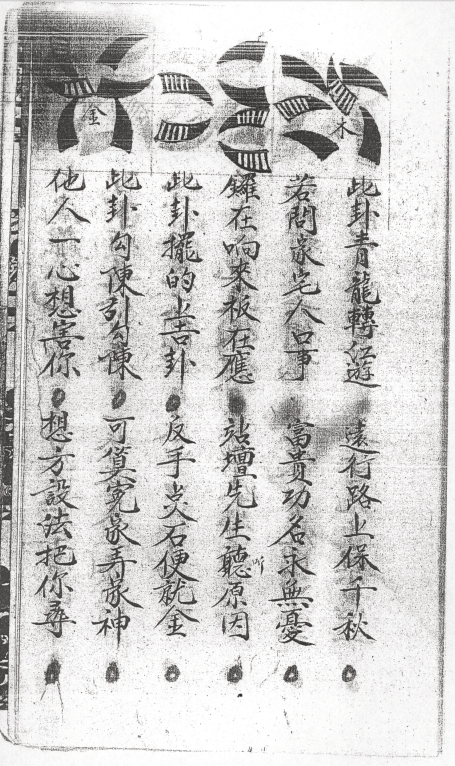 木
此卦青龍轉江遊 遠行路上保千秋
若問家宅人口事 富貴功名求無憂
鑼在响來板在應 站壇先生聽原因
此卦擺的上吉卦 反手点石便就金
金
此卦勾陳引勾陳 可算冤家弄家神
他人一心想害你 想方設法把你尋